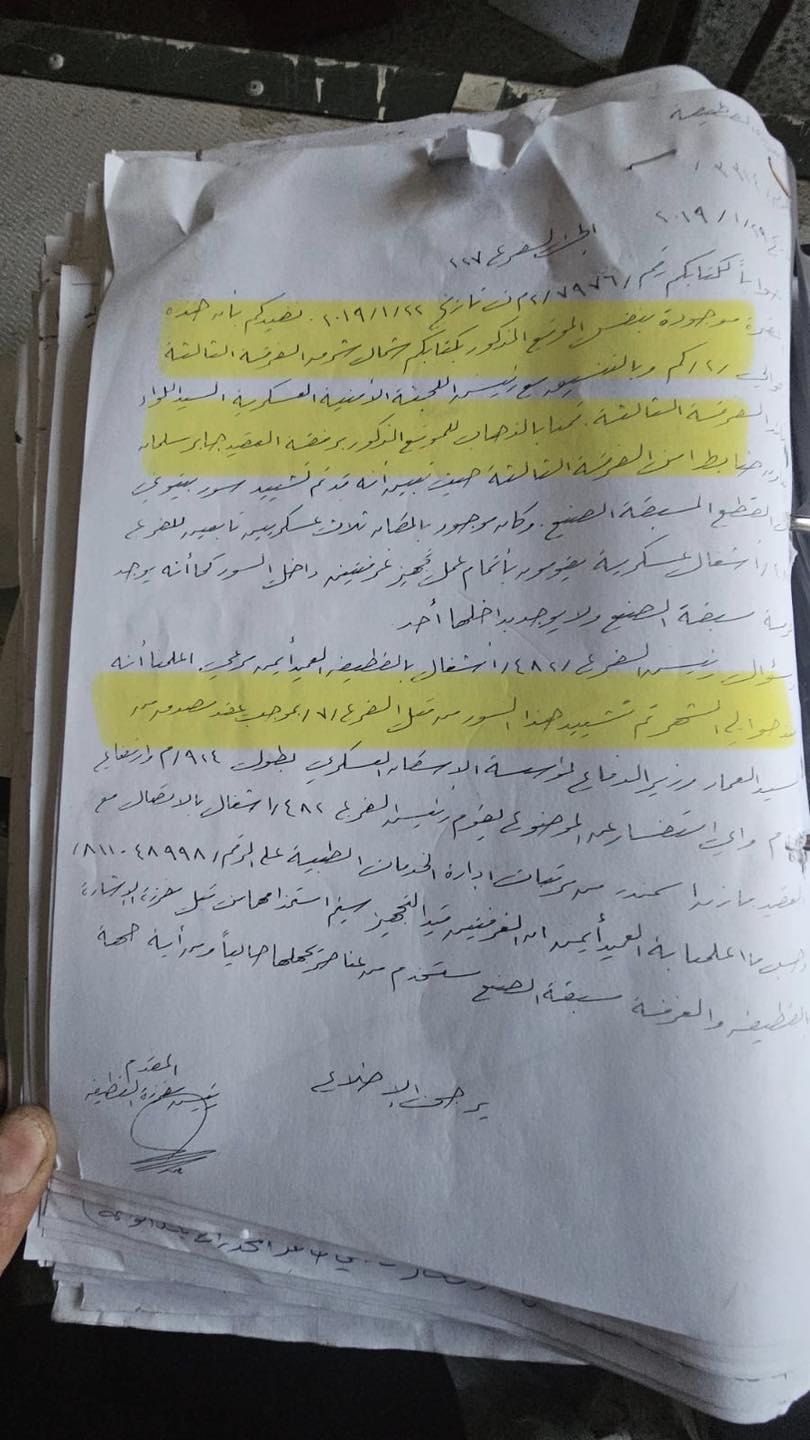 القطيفة
٢٠١٩/١/٢٩
الفرع ٢٢٧
لكتابكم رقم /٧٩٧٦/٢/م ن تاريخ ٢٠١٩/١/٢٢. نفيدكم بأن هذه
موجودة بنفس الموقع المذكور بكتابكم شمال شرق الفرقة الثالثة
حوالي /٢/ كم وبالتنسيق مع رئيس اللجنة الأمنية العسكرية السيد اللواء
قائد الفرقة الثالثة. قمنا بالذهاب للموقع المذكور برفقة العقيد جابر سلمان
ضابط أمن الفرقة الثالثة حيث تبين أنه قد تم تشييد سور بيتوني
من القطع المسبقة الصنع. وكان موجود بالمكان ثلاث عسكريين تابعين للفرع
أشغال عسكرية يقومون بأتمام عمل تجهيز غرفتين داخل السور كما أنه يوجد
مسبقة الصنع ولا يوجد بداخلها أحد
وبسؤال رئيس الفرع /٤٨٢/ أشغال بالقطيفة العميد أيمن مرعي. اعلمنا أنه
منذ حوالي الشهر تم تشييد هذا السور من قبل الفرع /٧/ بموجب عقد مصدق من
السيد العماد وزير الدفاع لمؤسسة الإسكان العسكري بطول ٩٢٤/م وارتفاع
م وأي استفسار عن الموضوع يقوم رئيس الفرع ٤٨٢/ اشغال بالاتصال مع
العقيد مازن اسمندر من مرتبات ادارة الخدمات الطبية على الرقم /٨١١٠٤٨٩٩٨/
وحسب ما اعلمنا به العميد أيمن ان الغرفتين قيد التجهيز سيتم استخدامها من قبل مفرزة الإشارة
القطيفة والغرفة مسبقة الصنع ستخدم من عناصر نجهلها حالياً ومن أية جهة
يرجى الإطلاع
المقدم
رئيس مفرزة القطيفة